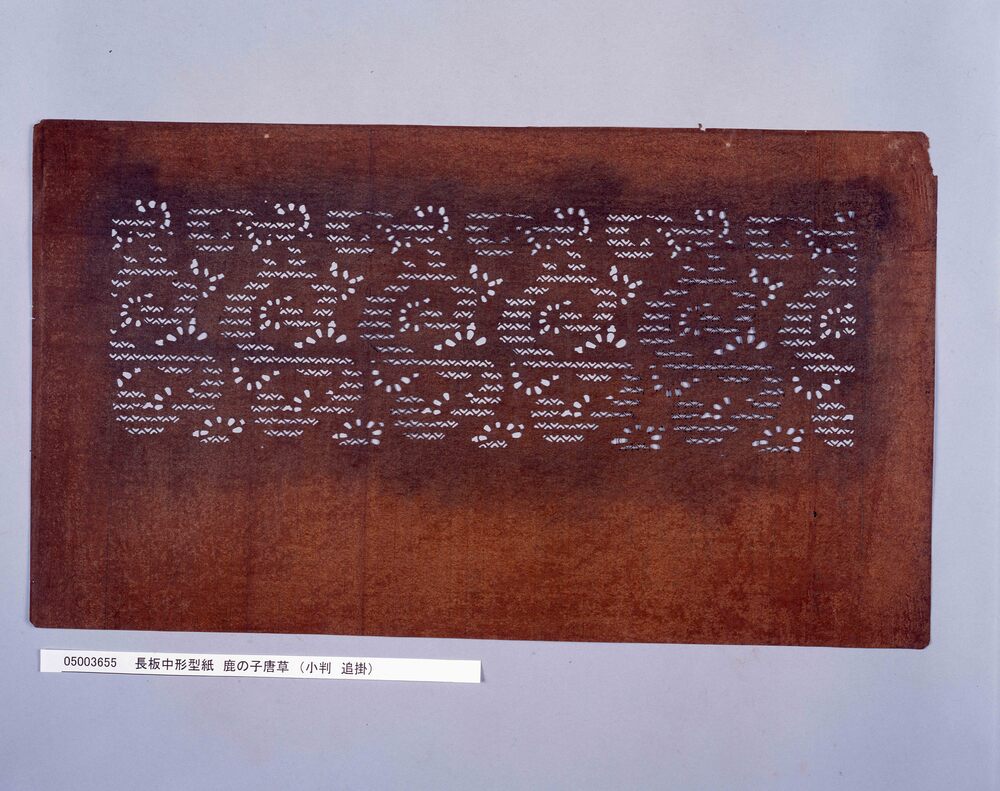 05003655 長板中形型紙 鹿の子唐草 (小判 追掛)